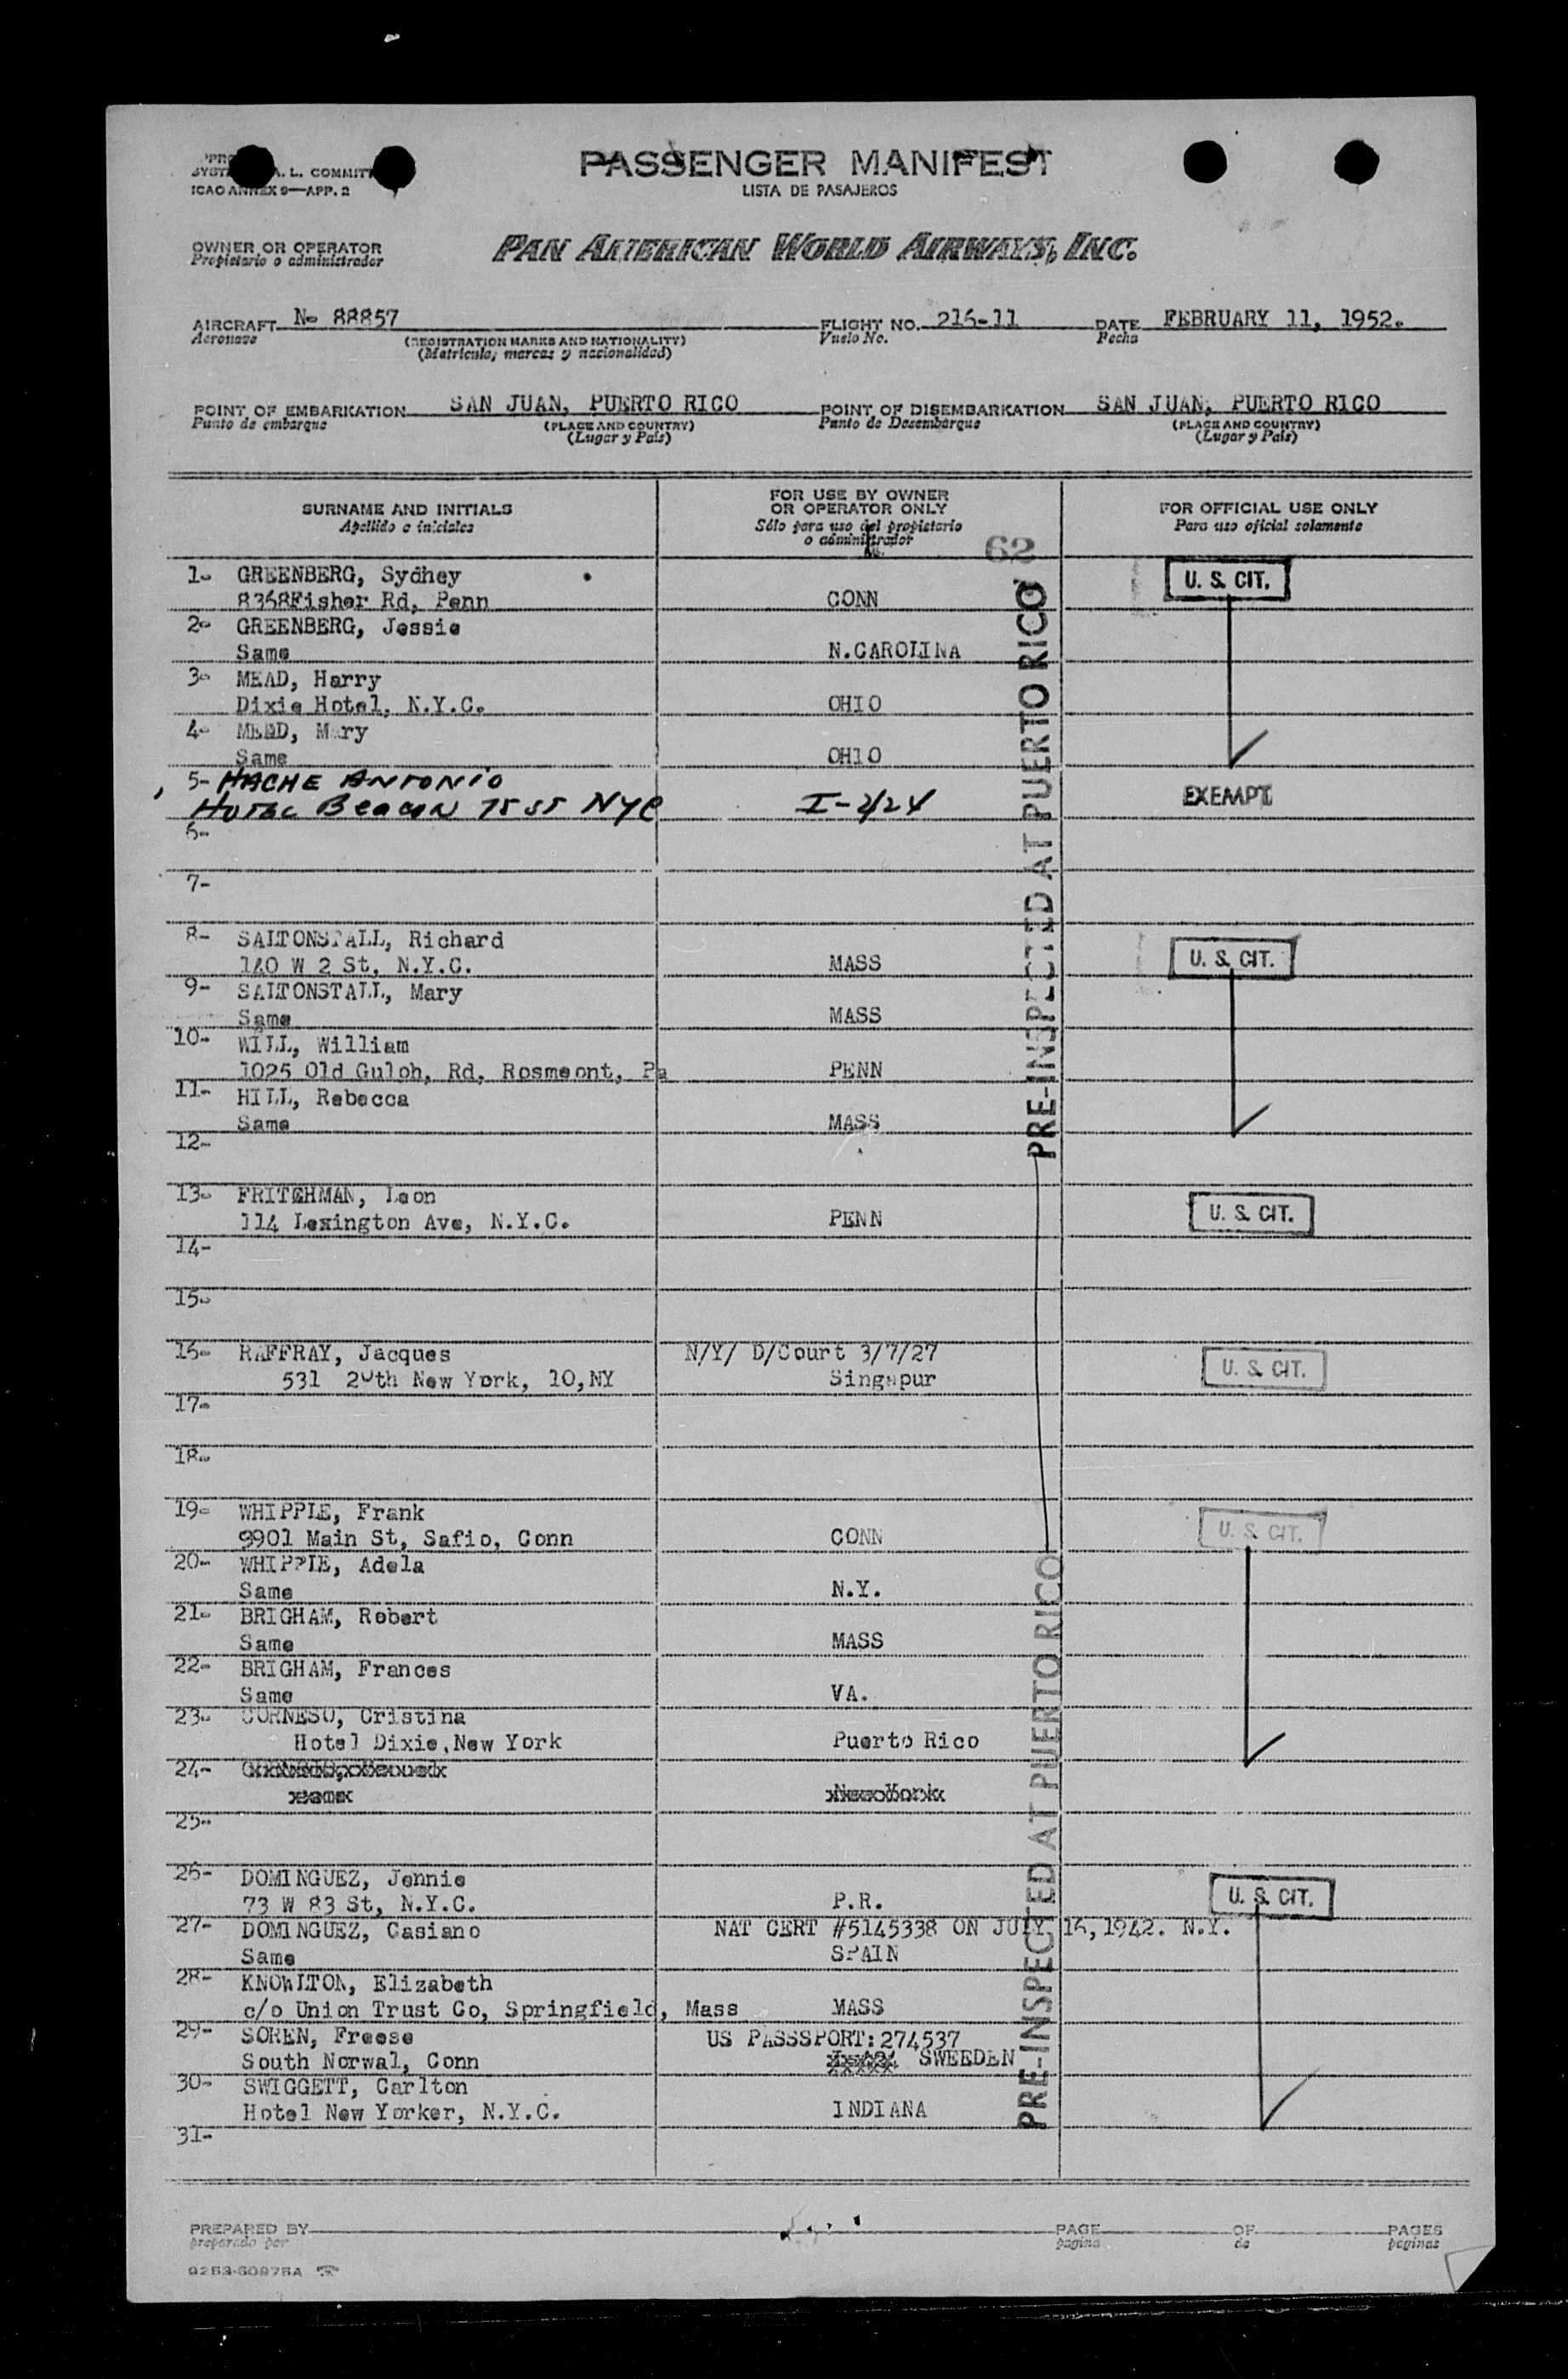 PASSENGER MANIFEST
LISTA DE PASAJEROS
A. L. COMMITT
ICAO ANNEX 9—APP. 2
OWNER OR OPERATOR
Propietario o administrador
PAN AMERICAN WORLD AIRWAYS, INC.
AIRCRAFT N- 88857 FLIGHT NO. 216-11 DATE FEBRUARY 11, 1952.
Aeronave (REGISTRATION MARKS AND NATIONALITY) Vuelo No. Fecha
(Matrícula, marcas y nacionalidad)
POINT OF EMBARKATION SAN JUAN, PUERTO RICO POINT OF DISEMBARKATION SAN JUAN, PUERTO RICO
Punto de embarque (PLACE AND COUNTRY) Punto de Desembarque (PLACE AND COUNTRY)
(Lugar y País) (Lugar y País)
SURNAME AND INITIALS FOR USE BY OWNER OR OPERATOR ONLY FOR OFFICIAL USE ONLY
Apellido e iniciales Sólo para uso del propietario o administrador Para uso oficial solamente
62
1- GREENBERG, Sydney U. S. CIT.
8368Fisher Rd, Penn CONN
2- GREENBERG, Jessie
Same N.CAROLINA
3- MEAD, Harry
Dixie Hotel, N.Y.C. OHIO
4- MEAD, Mary
Same OHIO
5- HACHE ANTONIO
Hotel Beacon 75 St NYC I-424 EXEMPT
6-
7-
8- SALTONSTALL, Richard U. S. CIT.
140 W 2 St, N.Y.C. MASS
9- SALTONSTALL, Mary
Same MASS
10- WILL, William
1025 Old Gulph, Rd, Rosmeont, Pa PENN
11- HILL, Rebecca
Same MASS
12-
PRE-INSPECTED AT PUERTO RICO
13- FRITCHMAN, Leon U. S. CIT.
114 Lexington Ave, N.Y.C. PENN
14-
15-
16- RAFFRAY, Jacques N/Y/ D/Court 3/7/27 U. S. CIT.
531 20th New York, 10,NY Singapur
17-
18-
19- WHIPPLE, Frank U. S. CIT.
9901 Main St, Safio, Conn CONN
20- WHIPPLE, Adela
Same N.Y.
21- BRIGHAM, Robert
Same MASS
22- BRIGHAM, Frances
Same VA.
23- CORNESO, Cristina
Hotel Dixie,New York Puerto Rico
24-
25-
26- DOMINGUEZ, Jennie U. S. CIT.
73 W 83 St, N.Y.C. P.R.
27- DOMINGUEZ, Casiano NAT CERT #5145338 ON JULY 16,1942. N.Y.
Same SPAIN
28- KNOWLTON, Elizabeth
c/o Union Trust Co, Springfield, Mass MASS
29- SOREN, Freese US PASSSPORT:274537
South Norwal, Conn SWEEDEN
30- SWIGGETT, Carlton
Hotel New Yorker, N.Y.C. INDIANA
31-
PRE-INSPECTED AT PUERTO RICO
PREPARED BY PAGE OF PAGES
preparado por pagina de paginas
9253-60975A